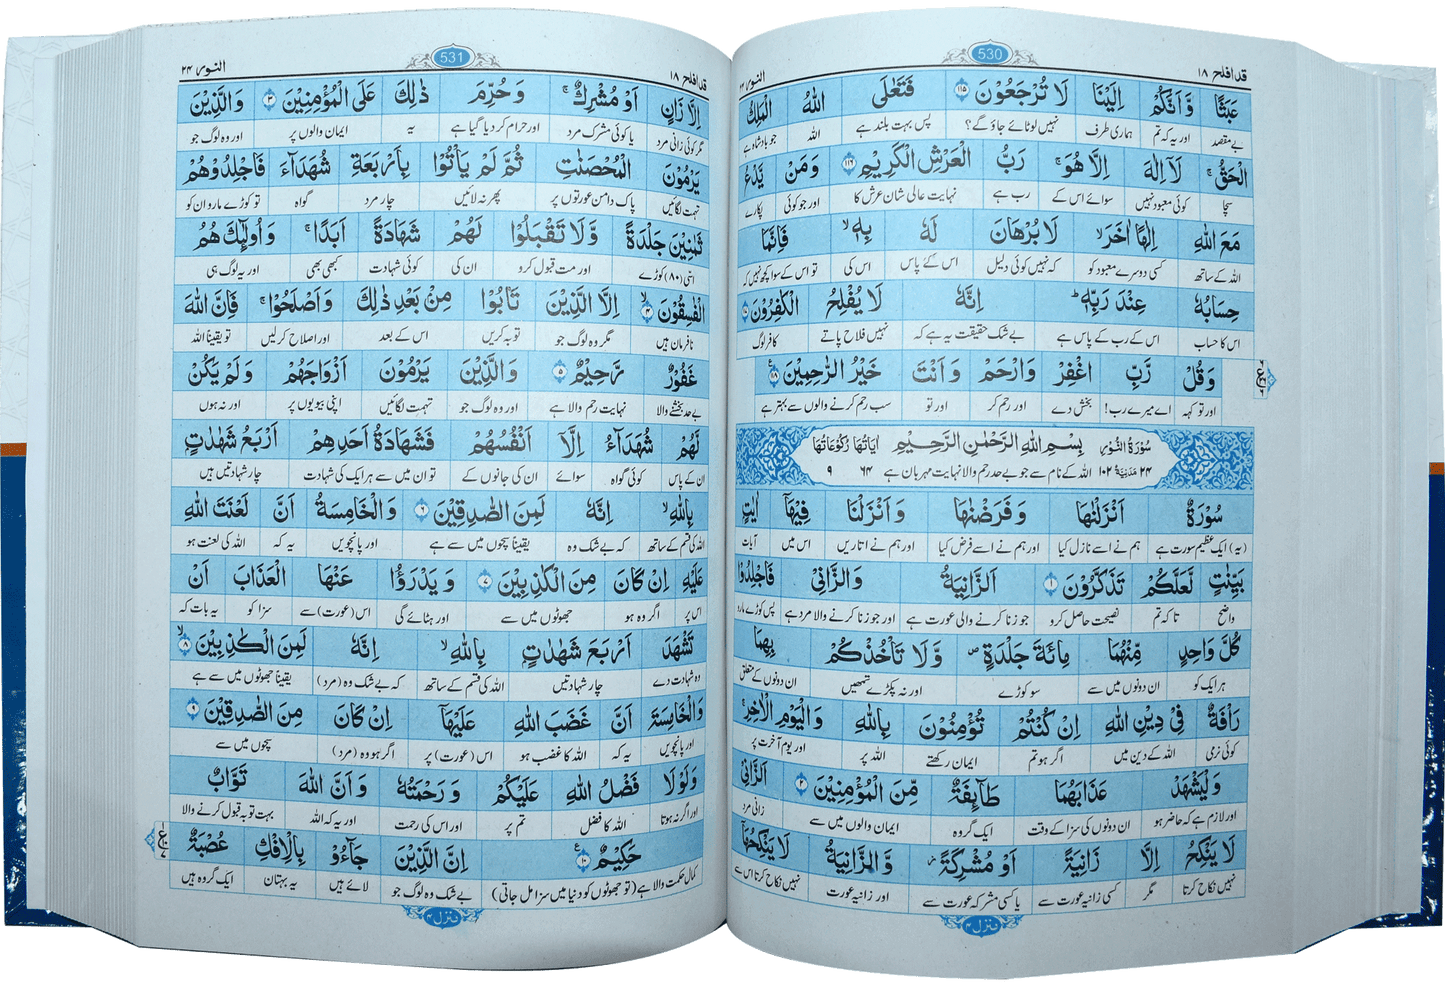 قد افلح ۱۸
530
النور ۲۴
عَبَثًا وَّ اَنَّكُمْ اِلَيْنَا لَا تُرْجَعُوْنَ ۱۱۵ فَتَعٰلَى اللهُ الْمَلِكُ
بے مقصد اور یہ کہ تم ہماری طرف نہیں لوٹائے جاؤ گے؟ پس بہت بلند ہے اللہ جو بادشاہ ہے
الْحَقُّ ۚ لَاۤ اِلٰهَ اِلَّا هُوَ ۚ رَبُّ الْعَرْشِ الْكَرِيْمِ ۱۱۶ وَ مَنْ يَّدْعُ
سچا کوئی معبود نہیں سوائے اس کے رب ہے نہایت عالی شان عرش کا اور جو کوئی پکارے
مَعَ اللهِ اِلٰهًا اٰخَرَ ۙ لَا بُرْهَانَ لَهٗ بِهٖ ۙ فَاِنَّمَا
اللہ کے ساتھ کسی دوسرے معبود کو کہ نہیں کوئی دلیل اس کے پاس اس کی تو اس کے سوا کچھ نہیں کہ
حِسَابُهٗ عِنْدَ رَبِّهٖ ؕ اِنَّهٗ لَا يُفْلِحُ الْكٰفِرُوْنَ
اس کا حساب اس کے رب کے پاس ہے بے شک حقیقت یہ ہے کہ نہیں فلاح پاتے کافر لوگ
وَ قُلْ رَّبِّ اغْفِرْ وَارْحَمْ وَ اَنْتَ خَيْرُ الرّٰحِمِيْنَ ۱۱۸
اور تو کہہ اے میرے رب! بخش دے اور رحم کر اور تو سب رحم کرنے والوں سے بہتر ہے
سُوْرَةُ النُّوْرِ بِسْمِ اللهِ الرَّحْمٰنِ الرَّحِيْمِ اٰيَاتُهَا رُكُوْعَاتُهَا
۲۴ مَدَنِيَّةٌ ۱۰۲ اللہ کے نام سے جو بے حد رحم والا نہایت مہربان ہے ۶۴ ۹
سُوْرَةٌ اَنْزَلْنٰهَا وَ فَرَضْنٰهَا وَ اَنْزَلْنَا فِيْهَاۤ اٰيٰتٍۭ
(یہ) ایک عظیم سورت ہے ہم نے اسے نازل کیا اور ہم نے اسے فرض کیا اور ہم نے اتاریں اس میں آیات
بَيِّنٰتٍ لَّعَلَّكُمْ تَذَكَّرُوْنَ ۱ اَلزَّانِيَةُ وَ الزَّانِيْ فَاجْلِدُوْا
واضح تاکہ تم نصیحت حاصل کرو جو زنا کرنے والی عورت ہے اور جو زنا کرنے والا مرد ہے پس کوڑے مارو
كُلَّ وَاحِدٍ مِّنْهُمَا مِائَةَ جَلْدَةٍ ۪ وَّ لَا تَاْخُذْكُمْ بِهِمَا
ہر ایک کو ان دونوں میں سے سو کوڑے اور نہ پکڑے تمہیں ان دونوں کے متعلق
رَاْفَةٌ فِيْ دِيْنِ اللهِ اِنْ كُنْتُمْ تُؤْمِنُوْنَ بِاللهِ وَ الْيَوْمِ الْاٰخِرِ ۚ
کوئی نرمی اللہ کے دین میں اگر ہو تم ایمان رکھتے اللہ پر اور یوم آخرت پر
وَ لْيَشْهَدْ عَذَابَهُمَا طَآىِٕفَةٌ مِّنَ الْمُؤْمِنِيْنَ ۲ اَلزَّانِيْ
اور لازم ہے کہ حاضر ہو ان دونوں کی سزا کے وقت ایک گروہ ایمان والوں میں سے زانی مرد
لَا يَنْكِحُ اِلَّا زَانِيَةً اَوْ مُشْرِكَةً ؗ وَّ الزَّانِيَةُ لَا يَنْكِحُهَاۤ
نہیں نکاح کرتا مگر کسی زانیہ عورت سے یا کسی مشرکہ عورت سے اور زانیہ عورت نہیں نکاح کرتا اس سے
منزل ۴
قد افلح ۱۸
531
النور ۲۴
اِلَّا زَانٍ اَوْ مُشْرِكٌ ۚ وَ حُرِّمَ ذٰلِكَ عَلَى الْمُؤْمِنِيْنَ ۳ وَ الَّذِيْنَ
مگر کوئی زانی مرد یا کوئی مشرک مرد اور حرام کر دیا گیا ہے یہ ایمان والوں پر اور وہ لوگ جو
يَرْمُوْنَ الْمُحْصَنٰتِ ثُمَّ لَمْ يَاْتُوْا بِاَرْبَعَةِ شُهَدَآءَ فَاجْلِدُوْهُمْ
تہمت لگائیں پاک دامن عورتوں پر پھر نہ لائیں چار مرد گواہ تو کوڑے مارو ان کو
ثَمٰنِيْنَ جَلْدَةً وَّ لَا تَقْبَلُوْا لَهُمْ شَهَادَةً اَبَدًا ۚ وَ اُولٰٓىِٕكَ هُمُ
اسّی (۸۰) کوڑے اور مت قبول کرو ان کی کوئی شہادت کبھی بھی اور یہ لوگ ہی
الْفٰسِقُوْنَ ۴ اِلَّا الَّذِيْنَ تَابُوْا مِنْۢ بَعْدِ ذٰلِكَ وَ اَصْلَحُوْا ۚ فَاِنَّ اللهَ
نافرمان ہیں مگر وہ لوگ جو توبہ کریں اس کے بعد اور اصلاح کر لیں تو یقیناً اللہ
غَفُوْرٌ رَّحِيْمٌ ۵ وَ الَّذِيْنَ يَرْمُوْنَ اَزْوَاجَهُمْ وَ لَمْ يَكُنْ
بے حد بخشنے والا نہایت رحم والا ہے اور وہ لوگ جو تہمت لگائیں اپنی بیویوں پر اور نہ ہوں
لَّهُمْ شُهَدَآءُ اِلَّاۤ اَنْفُسُهُمْ فَشَهَادَةُ اَحَدِهِمْ اَرْبَعُ شَهٰدٰتٍۭ
ان کے پاس کوئی گواہ سوائے ان کی جانوں کے تو ان میں سے ہر ایک کی شہادت چار شہادتیں ہیں
بِاللهِ ۙ اِنَّهٗ لَمِنَ الصّٰدِقِيْنَ ۶ وَ الْخَامِسَةُ اَنَّ لَعْنَتَ اللهِ
اللہ کی قسم کے ساتھ کہ بے شک وہ یقیناً سچوں میں سے ہے اور پانچویں یہ کہ اللہ کی لعنت ہو
عَلَيْهِ اِنْ كَانَ مِنَ الْكٰذِبِيْنَ ۷ وَ يَدْرَؤُا عَنْهَا الْعَذَابَ اَنْ
اس پر اگر وہ ہو جھوٹوں میں سے اور ہٹائے گی اس (عورت) سے سزا کو یہ بات کہ
تَشْهَدَ اَرْبَعَ شَهٰدٰتٍۭ بِاللهِ ۙ اِنَّهٗ لَمِنَ الْكٰذِبِيْنَ ۸
وہ شہادت دے چار شہادتیں اللہ کی قسم کے ساتھ کہ بے شک وہ (مرد) یقیناً جھوٹوں میں سے ہے
وَ الْخَامِسَةَ اَنَّ غَضَبَ اللهِ عَلَيْهَاۤ اِنْ كَانَ مِنَ الصّٰدِقِيْنَ ۹
اور پانچویں یہ کہ اللہ کا غضب ہو اس (عورت) پر اگر ہو وہ (مرد) سچوں میں سے
وَ لَوْ لَا فَضْلُ اللهِ عَلَيْكُمْ وَ رَحْمَتُهٗ وَ اَنَّ اللهَ تَوَّابٌ
اور اگر نہ ہوتا اللہ کا فضل تم پر اور اس کی رحمت اور یہ کہ اللہ بہت توبہ قبول کرنے والا
حَكِيْمٌ ۱۰ اِنَّ الَّذِيْنَ جَآءُوْ بِالْاِفْكِ عُصْبَةٌ
کمال حکمت والا ہے (تو جھوٹوں کو دنیا میں سزا مل جاتی) بے شک وہ لوگ جو لائے ہیں یہ بہتان ایک گروہ ہیں
منزل ۴